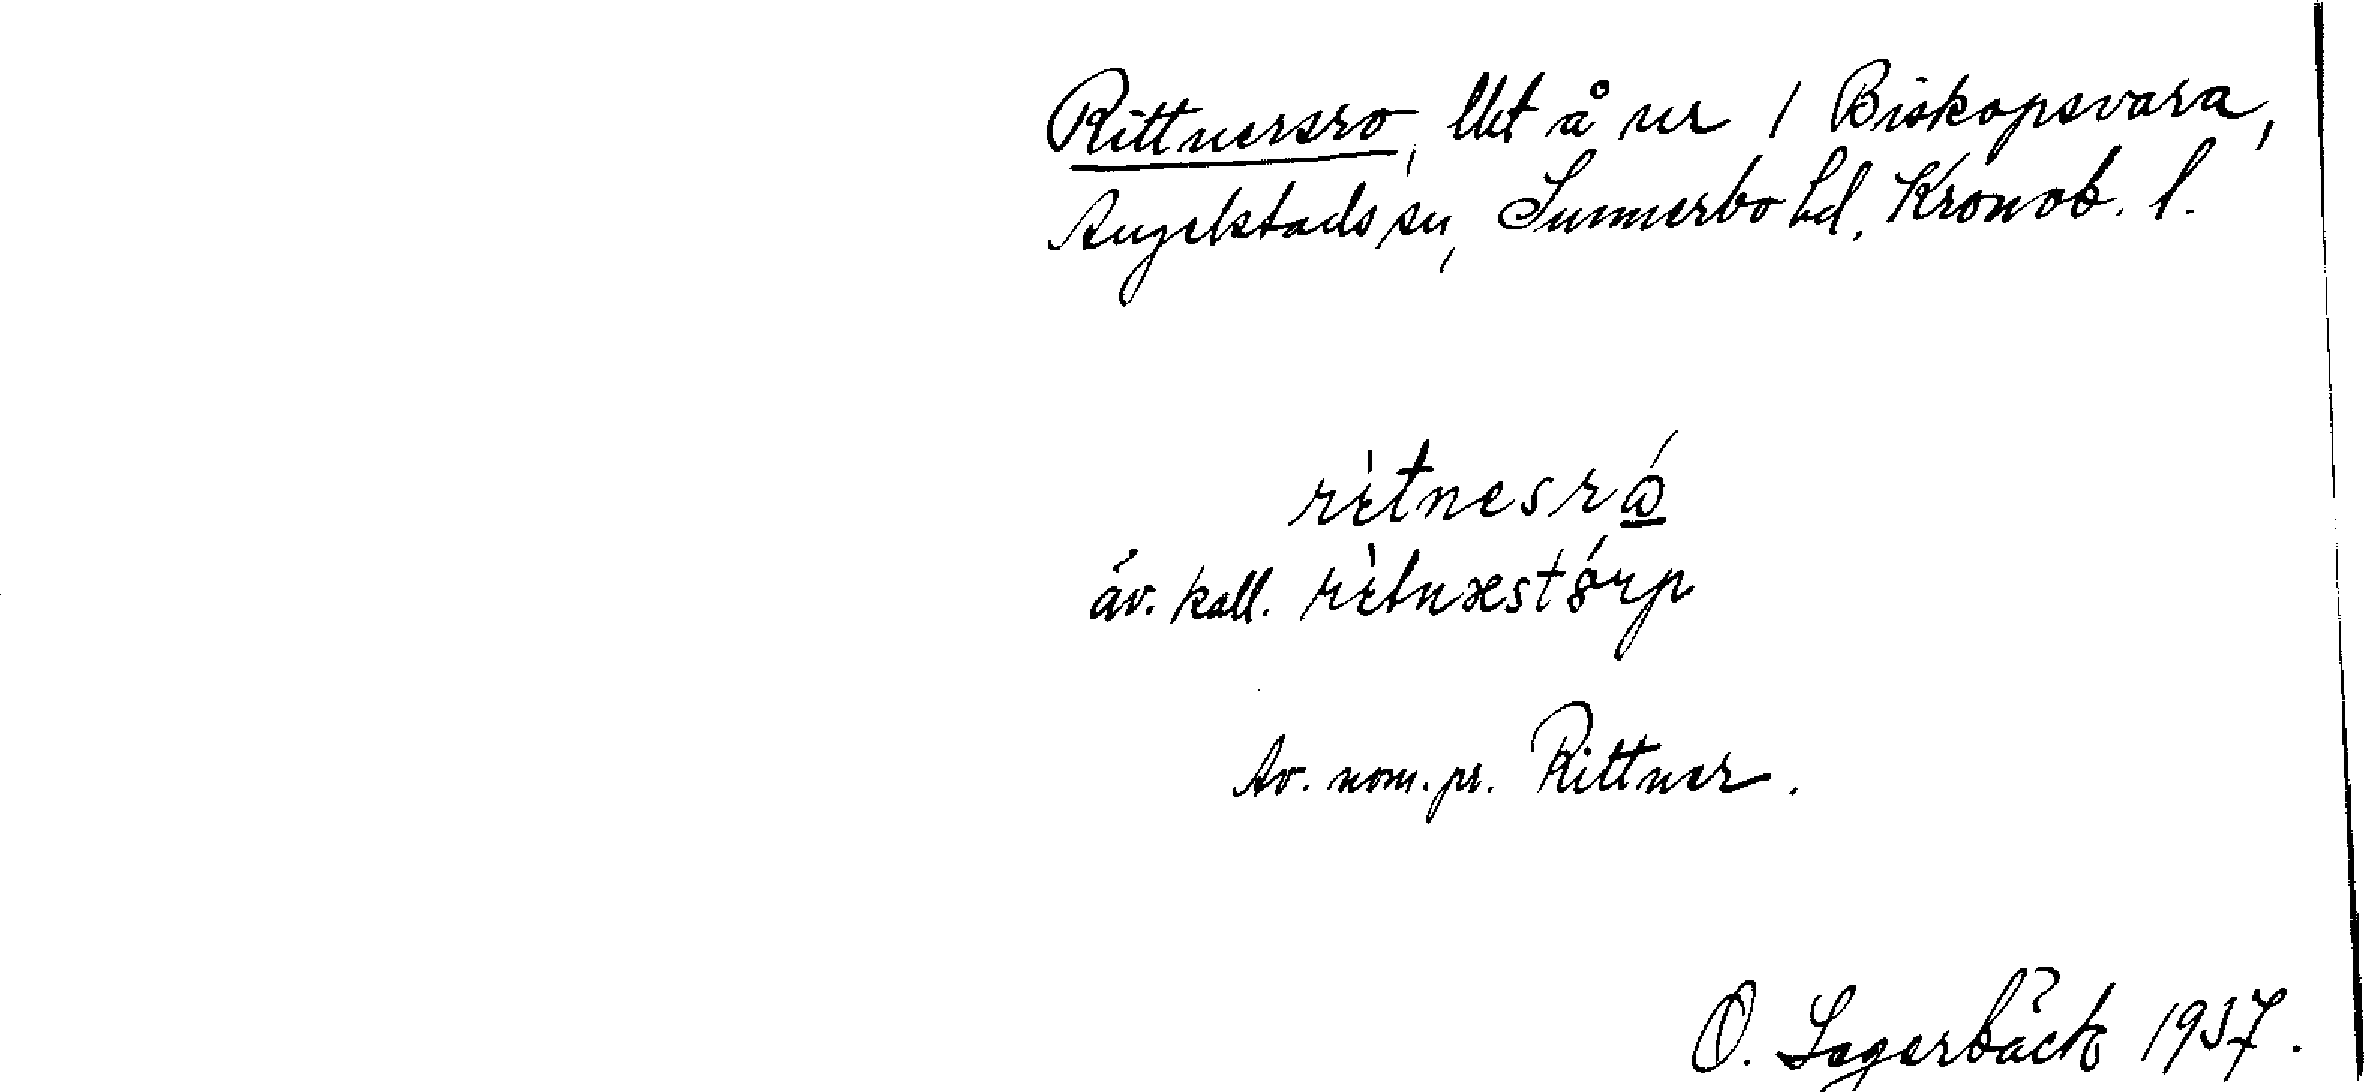 Rittnersro, lht å nr 1 Biskopsvara,
Angelstads sn, Sunnerbo hd, Kronob. l.
rètnesró
äv. kall. rètnæstórp
Av. nom. pr. Rittner.
O. Lagerbäck 1937.